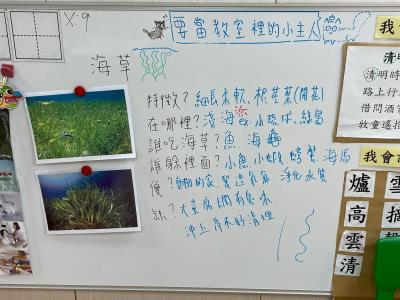 X:9
要當教室裡的小主人
海草
特徵? 細長柔軟、根莖葉(開花)
在哪裡? 淺海 ex 小琉球、綠島
誰吃海草? 魚、海龜
誰躲裡面? 小魚小蝦螃蟹、海馬
優? 動物的家、製造氧氣、淨化水質
缺? 大量腐爛有臭味
沖上岸不好清理
我會
清明
清明時
路上行
借問酒
牧童遙指
我會
爐 雲
高 摘
雲
清